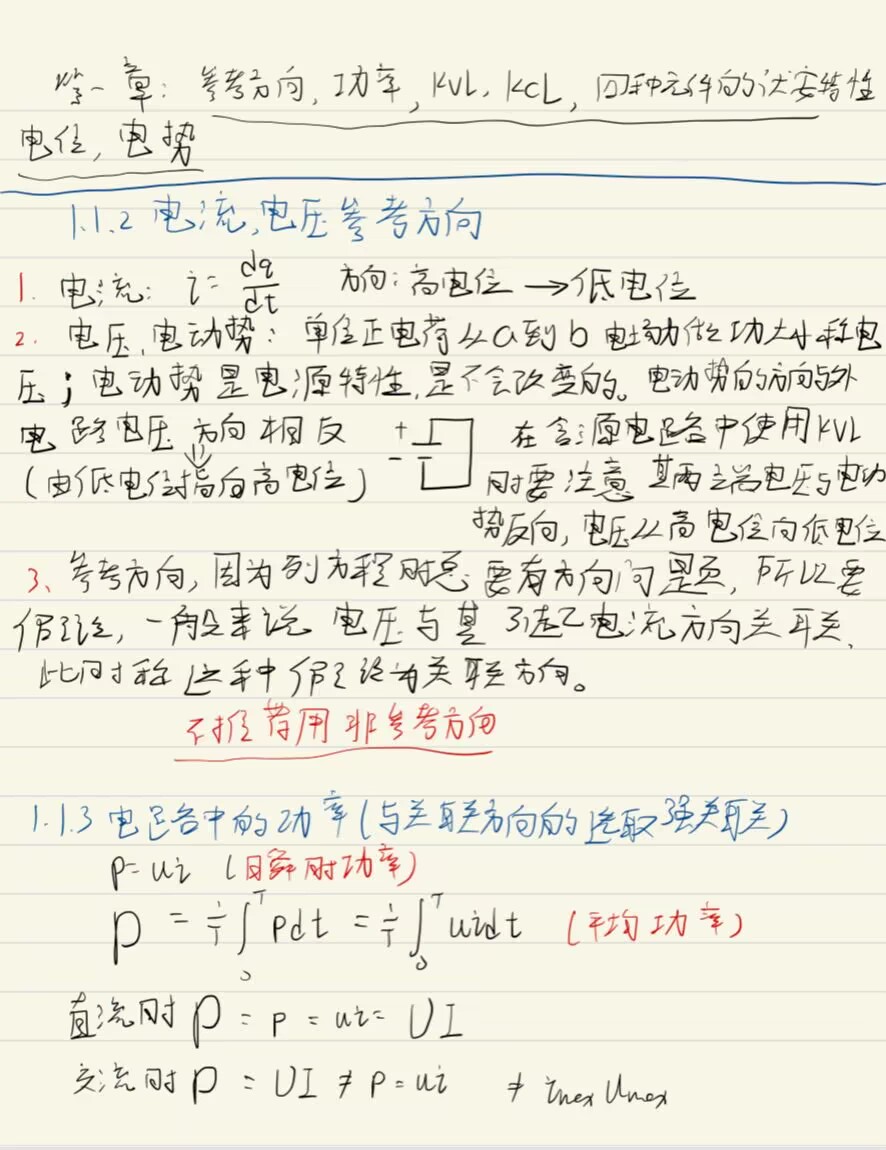 第一章：参考方向，功率，KVL，KCL，四种元件的伏安特性
电位，电势
1.1.2 电流，电压参考方向
1. 电流：i=dq/dt 方向：高电位→低电位
2. 电压、电动势：单位正电荷从a到b电场力做功大小称电
压；电动势是电源特性，是不会改变的。电动势的方向与外
电路电压方向相反 + - 在含源电路中使用KVL
(由低电位指向高电位) 时要注意 其两端电压与电动
势反向，电压从高电位向低电位
3、参考方向，因为列方程时总要有方向问题，所以要
假设，一般来说 电压与其引起电流方向关联，
此时称这种假设为关联方向。
不推荐用非参考方向
1.1.3 电路中的功率(与关联方向的选取强关联)
p=ui (瞬时功率)
P = 1/T ∫₀ᵀ pdt = 1/T ∫₀ᵀ uidt (平均功率)
直流时 P = p = ui = UI
交流时 P = UI ≠ p = ui ≠ imax Umax